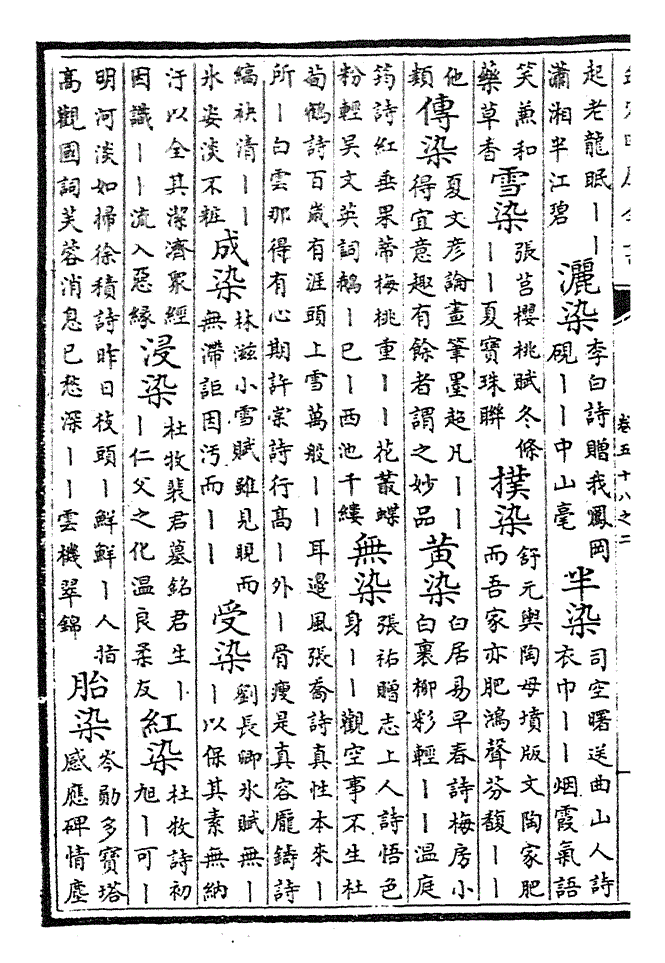 卷五十八之二
起老龍眠丨丨
瀟湘半江碧
灑染
李白詩贈我鳳岡
硯丨丨中山毫
半染
司空曙送曲山人詩
衣巾丨丨烟霞氣語
笑兼和
藥草香
雪染
張莒櫻桃賦冬條
丨丨夏寶珠聨
撲染
舒元輿陶母墳版文陶家肥
而吾家亦肥鴻聲芬馥丨丨
他
類
傳染
夏文彦論畫筆墨超凡丨丨
得宜意趣有餘者謂之妙品
黄染
白居易早春詩梅房小
白裏柳彩輕丨丨温庭
筠詩紅垂果蔕梅桃重丨丨花叢蝶
粉輕吳文英詞鵝丨已丨西池千縷
無染
張祐贈志上人詩悟色
身丨丨觀空事不生杜
荀鶴詩百歲有涯頭上雪萬般丨丨耳邊風張喬詩真性本來丨
所丨白雲那得有心期許棠詩行高丨外丨骨瘦是真容龐鑄詩
縞袂清丨丨
氷姿淡不粧
成染
林滋小雪賦雖見晛而
無滯詎因汚而丨丨
受染
劉長卿氷賦無丨
丨以保其素無納
汙以全其潔濟衆經
因識丨丨流入惡緣
浸染
杜牧裴君墓銘君生丨
丨仁父之化温良柔友
紅染
杜牧詩初
旭丨可丨
明河淡如掃徐積詩昨日枝頭丨鮮鮮丨人指
高觀國詞芙蓉消息已愁深丨丨雲機翠錦
胎染
岑勛多寶塔
感應碑情塵